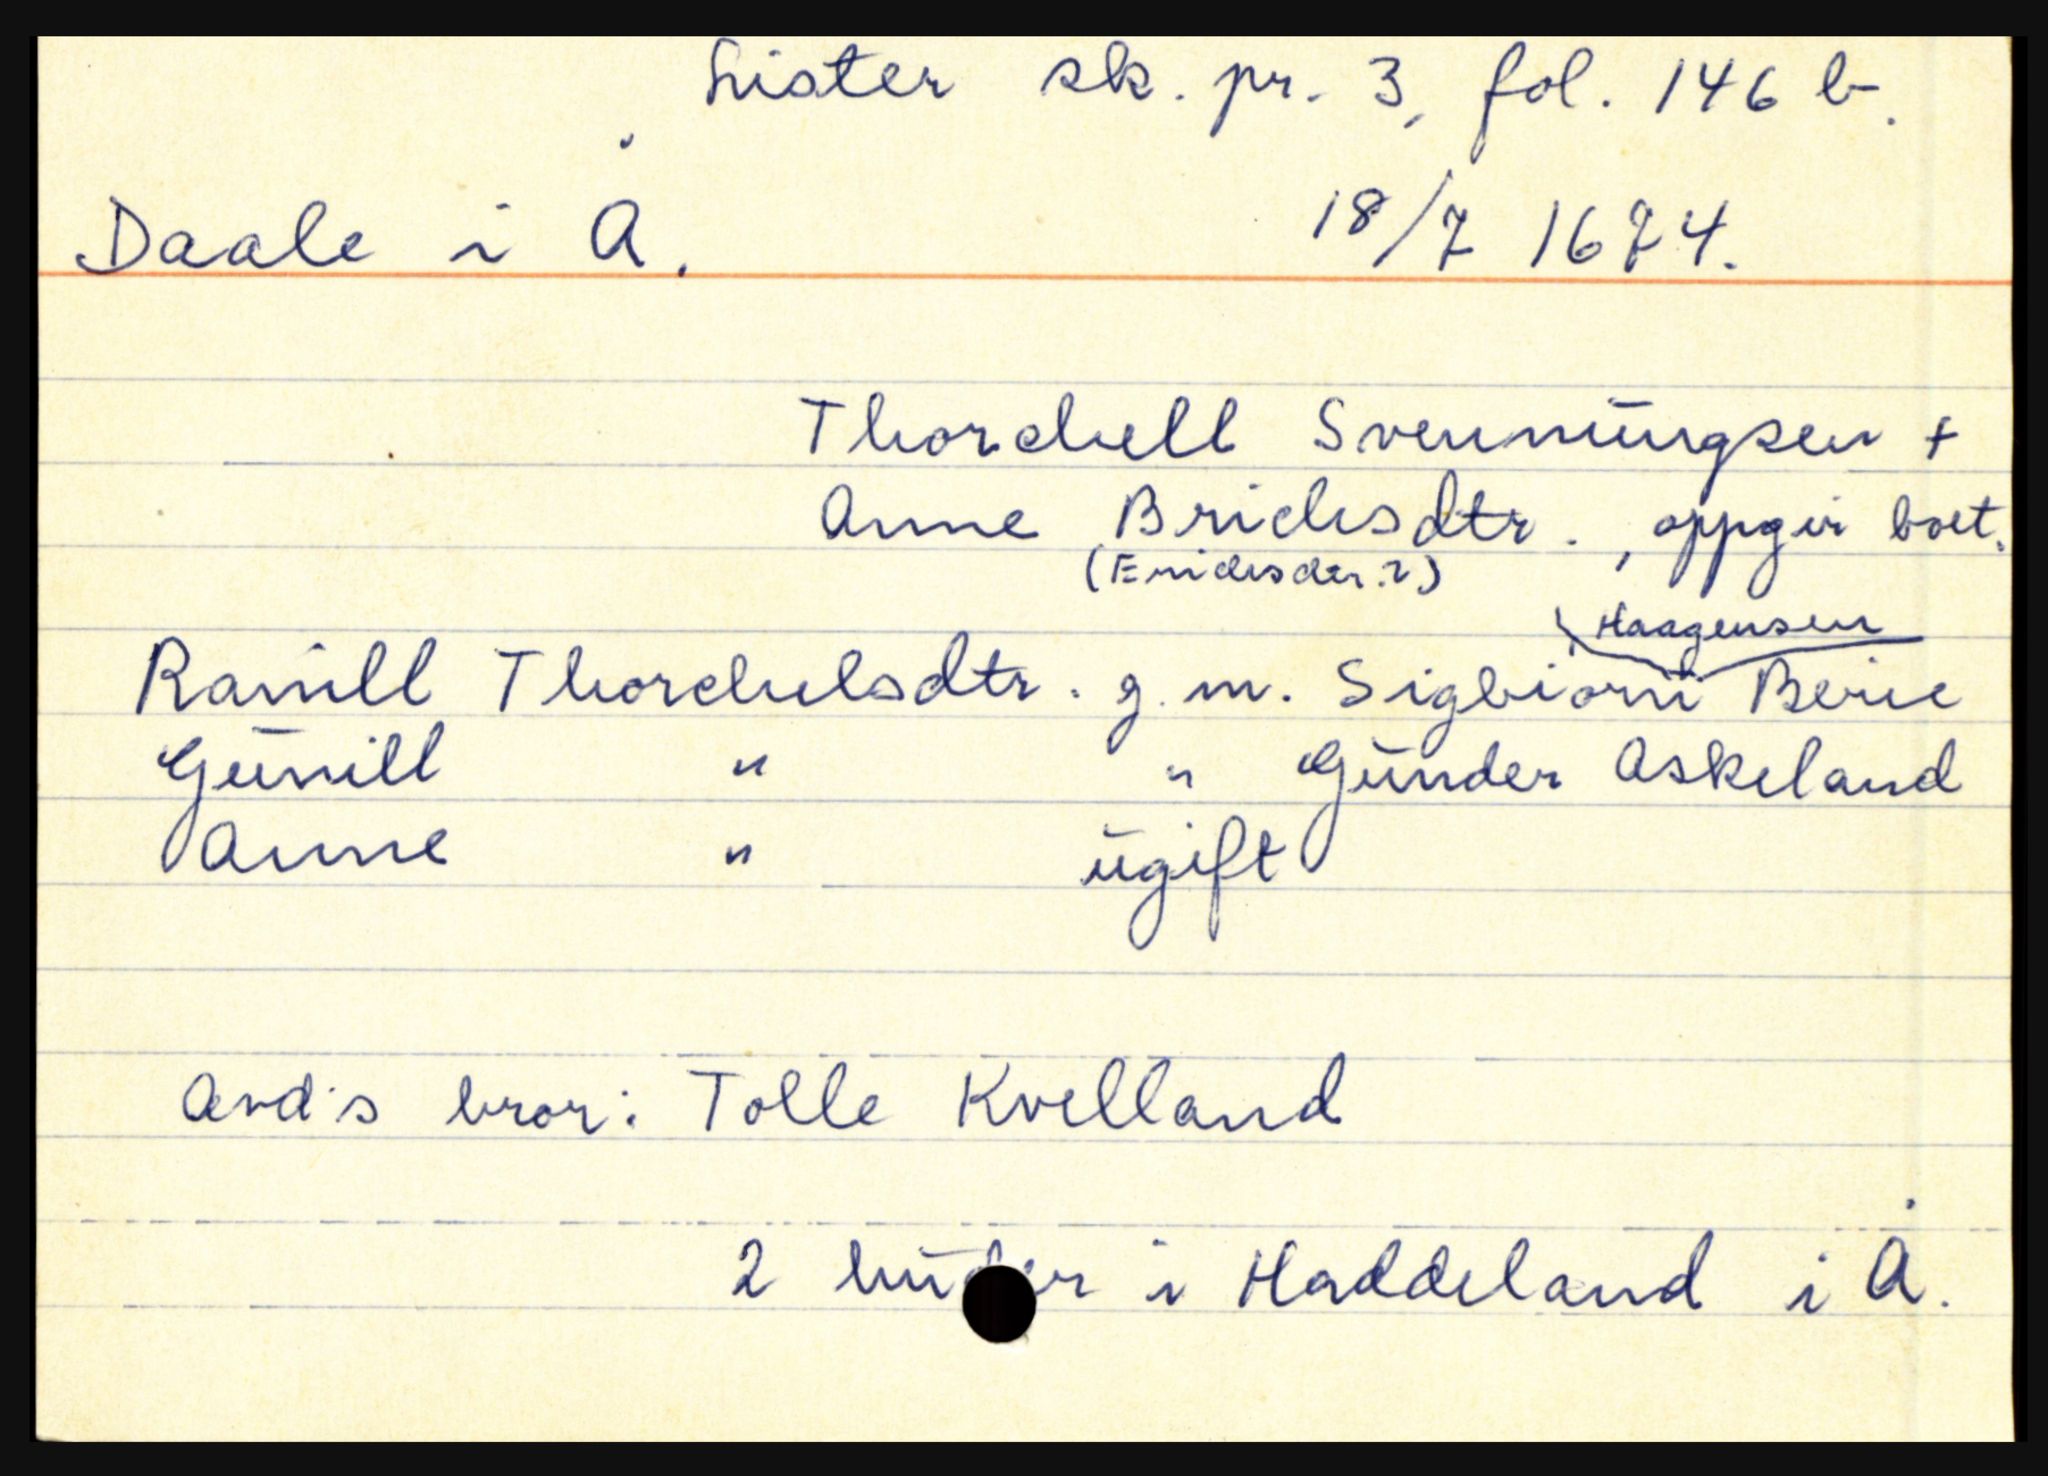 Lister sk. pr. 3, fol. 146 b.
Daale i Å. 18/7 1674.
Thorchell Svennungsen +
Anne Brichsdtr., oppgir boet.
(Erichsdtr.?)
Haagensen
Ranill Thorchelsdtr. g. m. Sigbiorn Berie
Gunill " " Gunder Askeland
Anne " ugift
Avd's bror: Tolle Kvelland
2 huder i Haddeland i Å.